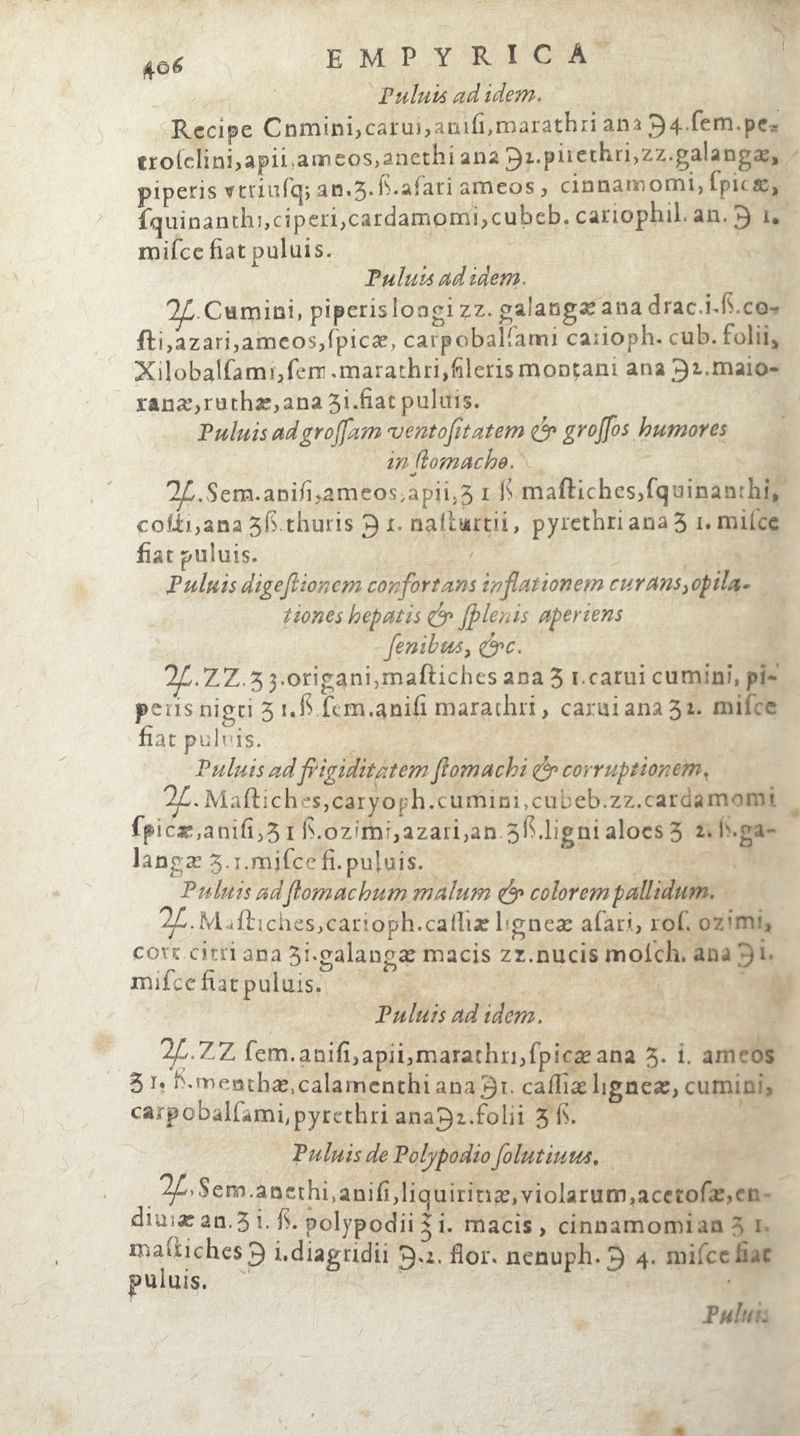 406
EMPYRICA
Puluis ad idem.
Recipe Cnmini,carui,anisi,marathri ana ℈4.sem.pe-
troselini,apii,ameos,anethi ana ℈2.pirethri,zz.galangæ,
piperis vtriusq; an.ʒ.ß.asari ameos, cinnamomi, spicæ,
squinanthi,ciperi,cardamomi,cubeb. cariophil. an. ℈ 1.
misce fiat puluis.
Puluis ad idem.
℞.Cumini, piperis longi zz. galangæ ana drac.i.ß.co-
sti,azari,ameos,spicæ, carpobalsami carioph. cub. folii,
Xilobalsami,sem.marathri,sileris montani ana ℈2.maio-
ranæ,ruthæ,ana ʒi.fiat puluis.
Puluis ad grossam ventositatem & grossos humores
in stomacho.
℞.Sem.anisi,ameos,apii,ʒ 1 ß mastiches,squinanthi,
costi,ana ʒß.thuris ℈ 1. nasturtii, pyrethri ana ʒ 1. misce
fiat puluis.
Puluis digestionem confortans inflationem curans,opila-
tiones hepatis & splenis aperiens
senibus, &c.
℞.ZZ.ʒ 3.origani,mastiches ana ʒ 1.carui cumini, pi-
peris nigri ʒ 1.ß sem.anisi marathri, carui ana ʒ2. misce
fiat puluis.
Puluis ad frigiditatem stomachi & corruptionem.
℞. Mastiches,caryoph.cumini,cubeb.zz.cardamomi
spicæ,anisi,ʒ 1 ß.ozimi,azari,an.ʒß.ligni aloes ʒ 2.ß.ga-
langæ ʒ.1.misce fi.puluis.
Puluis ad stomachum malum & colorem pallidum.
℞.Mastiches,carioph.cassiæ ligneæ asari, ros. ozimi,
cort citri ana ʒi.galangæ macis zz.nucis mosch. ana ℈i.
misce fiat puluis.
Puluis ad idem.
℞.ZZ sem.anisi,apii,marathri,spicæ ana ʒ. i. ameos
ʒ 1. ß.menthæ,calamenthi ana ℈1. cassiæ ligneæ, cumini,
carpobalsami,pyrethri ana℈2.folii ʒ ß.
Puluis de Polypodio solutiuus.
℞.Sem.anethi,anisi,liquiritiæ,violarum,acetosæ,en-
diuiæ an.ʒ i. ß. polypodii ℥ i. macis, cinnamomi an ʒ 1.
mastiches ℈ i.diagridii ℈.2. flor. nenuph. ℈ 4. misce fiat
puluis.
Puluis